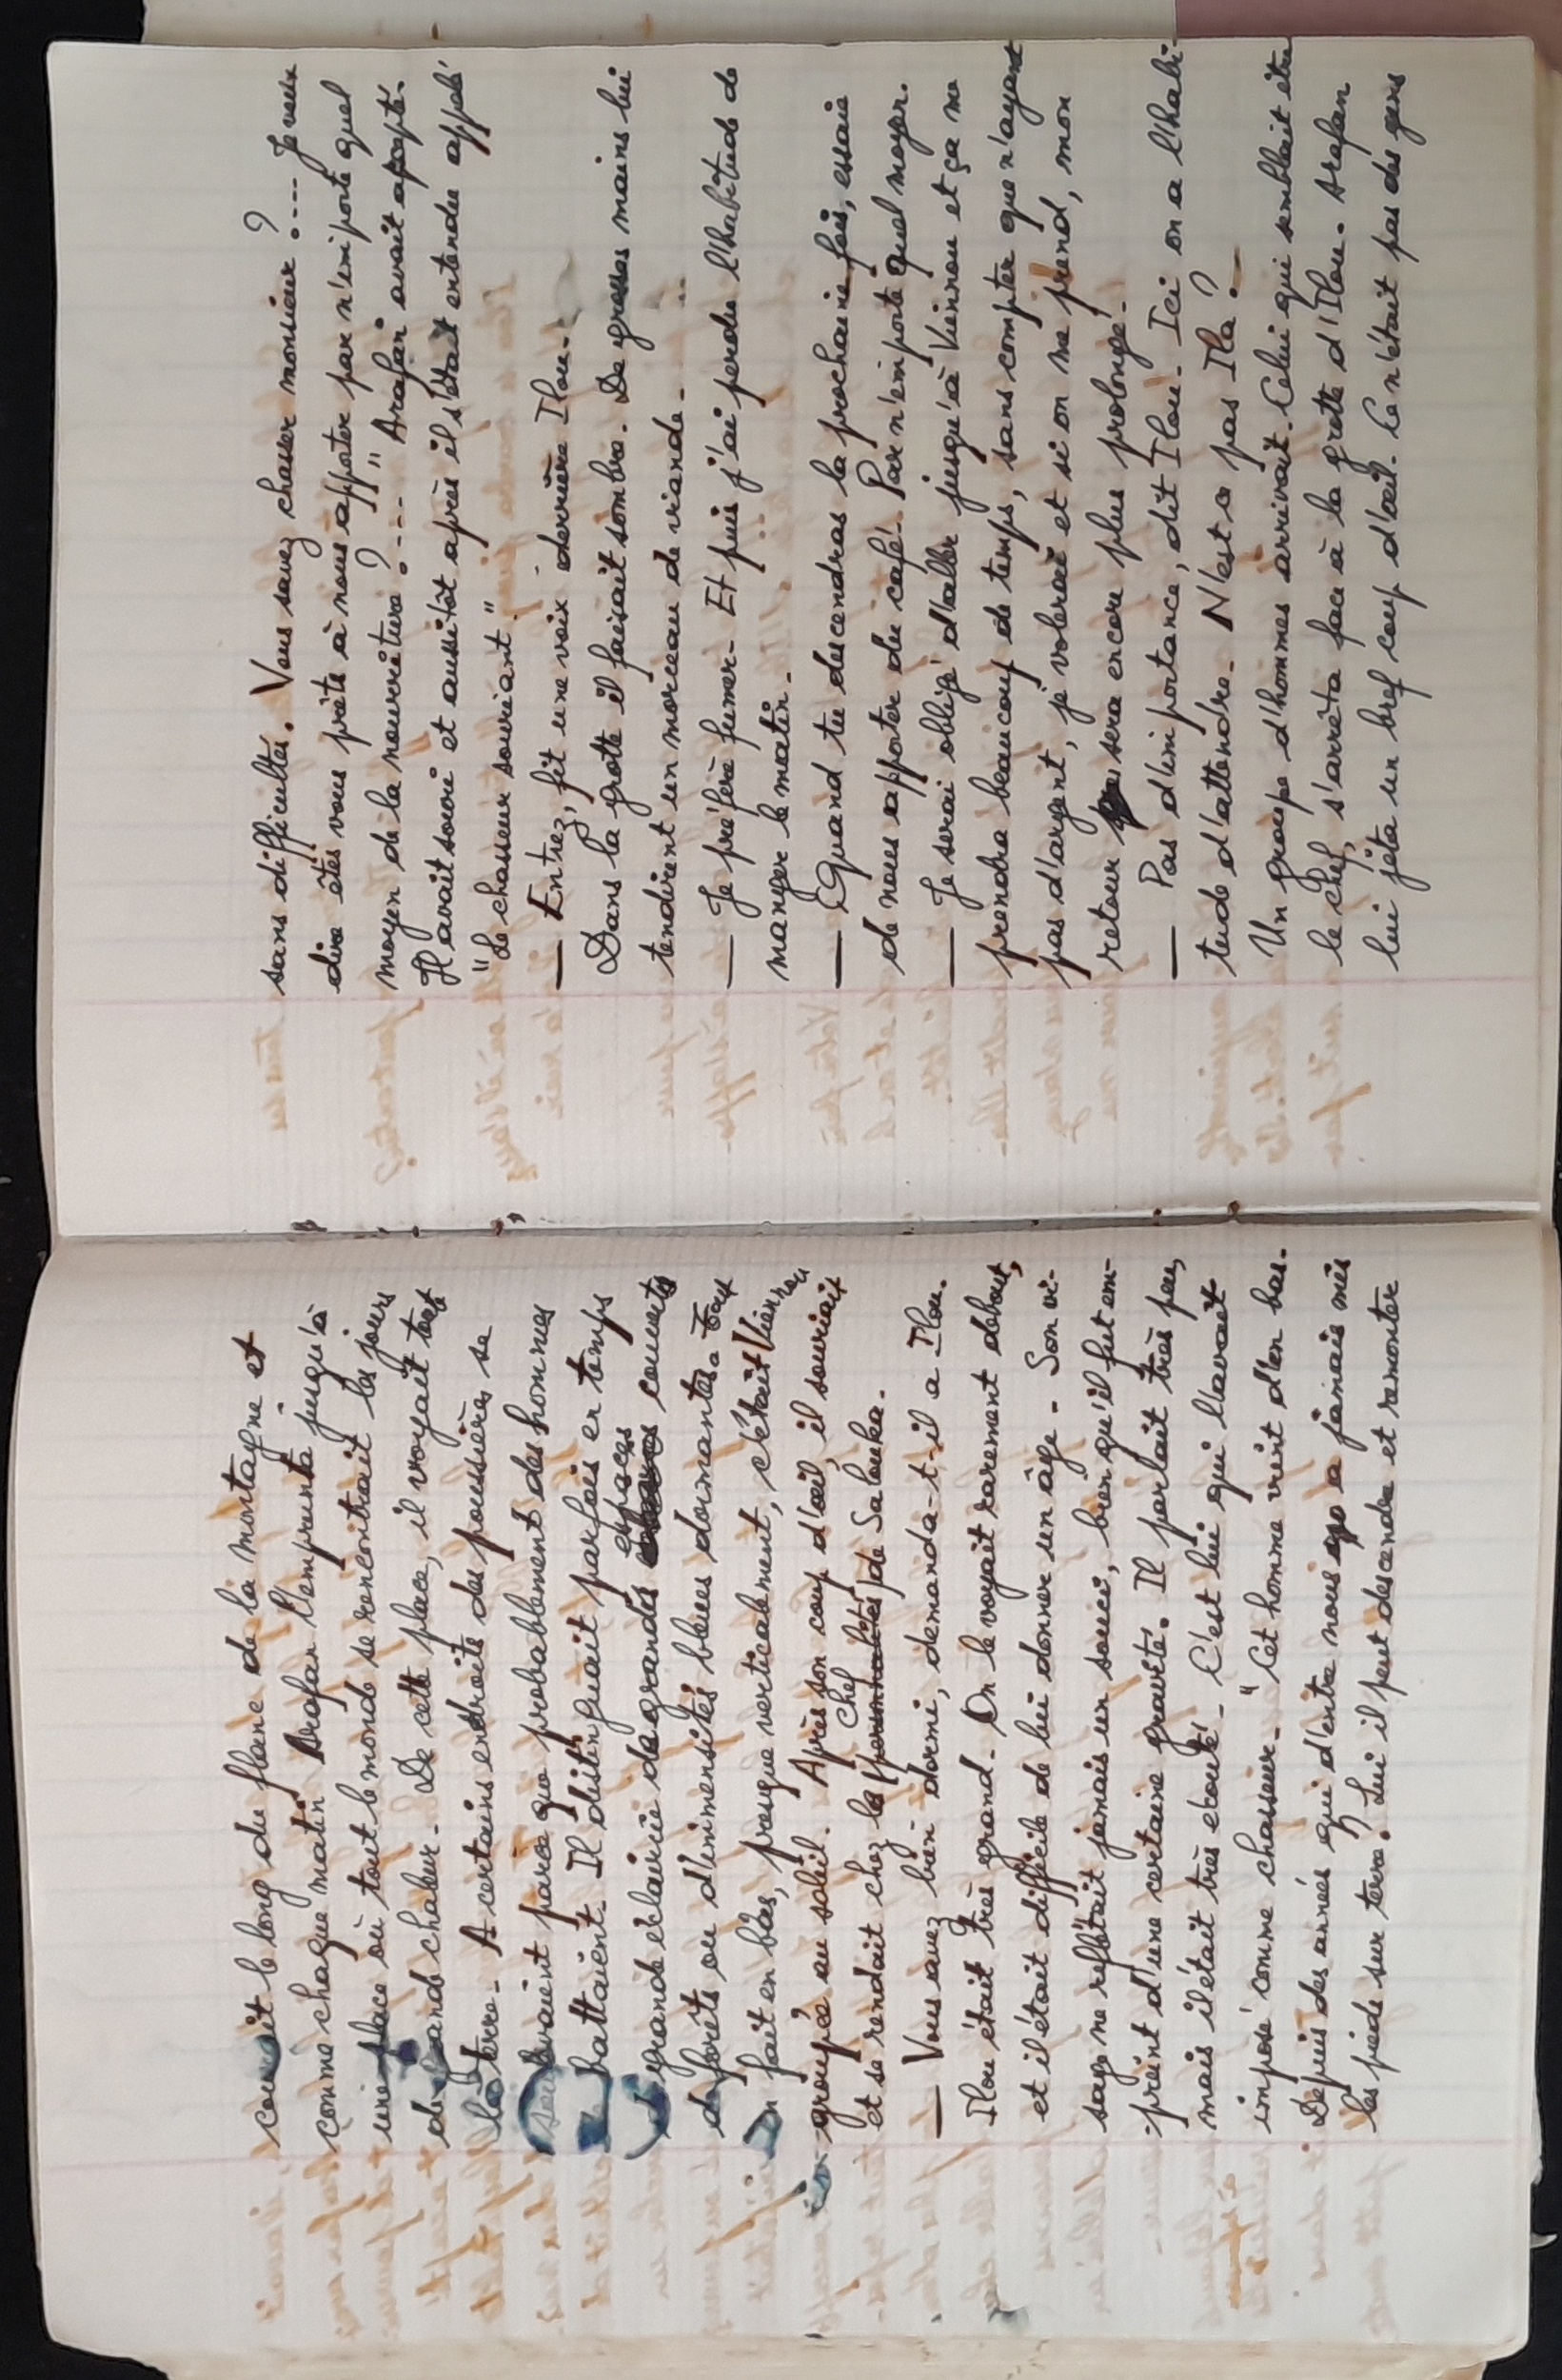 courait le long du flanc de la montagne et
comme chaque matin Arafan l'emprunta jusqu'à
une place où tout le monde se rencontrait les jours
de grande chaleur. De cette place, il voyait toute
la terre. A certains endroits des poussières se
soulevaient parce que probablement des hommes
se battaient. Il distinguait parfois en temps
de grande éclaircie de grandes espaces couverts
de forêts ou d'immensités bleues dormantes. Tout
en fait en bas, presque verticalement, c'était Viennou
groupée au soleil. Après son coup d'œil, il souriait
et se rendait chez le chef de Salouka.
— Vous avez bien dormi, demanda-t-il a Ilou.
Ilou était très grand. On le voyait rarement debout,
et il était difficile de lui donner un âge. Son vi-
sage ne reflétait jamais un souci, bien qu'il fut em-
preint d'une certaine gravité. Il parlait très peu,
mais il était très ecouté. C'est lui qui l'avait
imposé comme chasseur. "Cet homme vient d'en bas.
Depuis des années qui d'entre nous a jamais mis
les pieds sur terre? Lui il peut descendre et remonter
sans difficultés. Vous savez chasser monsieur?.... Je veux
dire êtes vous prêts à nous apporter par n'importe quel
moyen de la nourriture?...." Arafan avait accepté.
Il avait souri et aussitôt après il s'était entendu appelé
"Le chasseur souriant."
— Entrez, fit une voix derrière Ilou.
Dans la grotte il faisait sombre. De grosses mains lui
tendirent un morceau de viande.
— Je préfère fumer. Et puis j'ai perdu l'habitude de
manger le matin.
— Quand tu descendras la prochaine fois, essaie
de nous apporter du café. Par n'importe quel moyen.
— Je serai obligé d'aller jusqu'à Viennou et ça me
prendra beaucoup de temps, sans compter que n'ayant
pas d'argent, je volerai et si on me prend, mon
retour sera encore plus prolongé.
— Pas d'importance, dit Ilou. Ici on a l'habi-
tude d'attendre. N'est ce pas Ila?
Un groupe d'hommes arrivait. Celui qui semblait être
le chef, s'arrêta face à la grotte d'Ilou. Arafan
lui jèta un bref coup d'œil. Ce n'était pas des gens